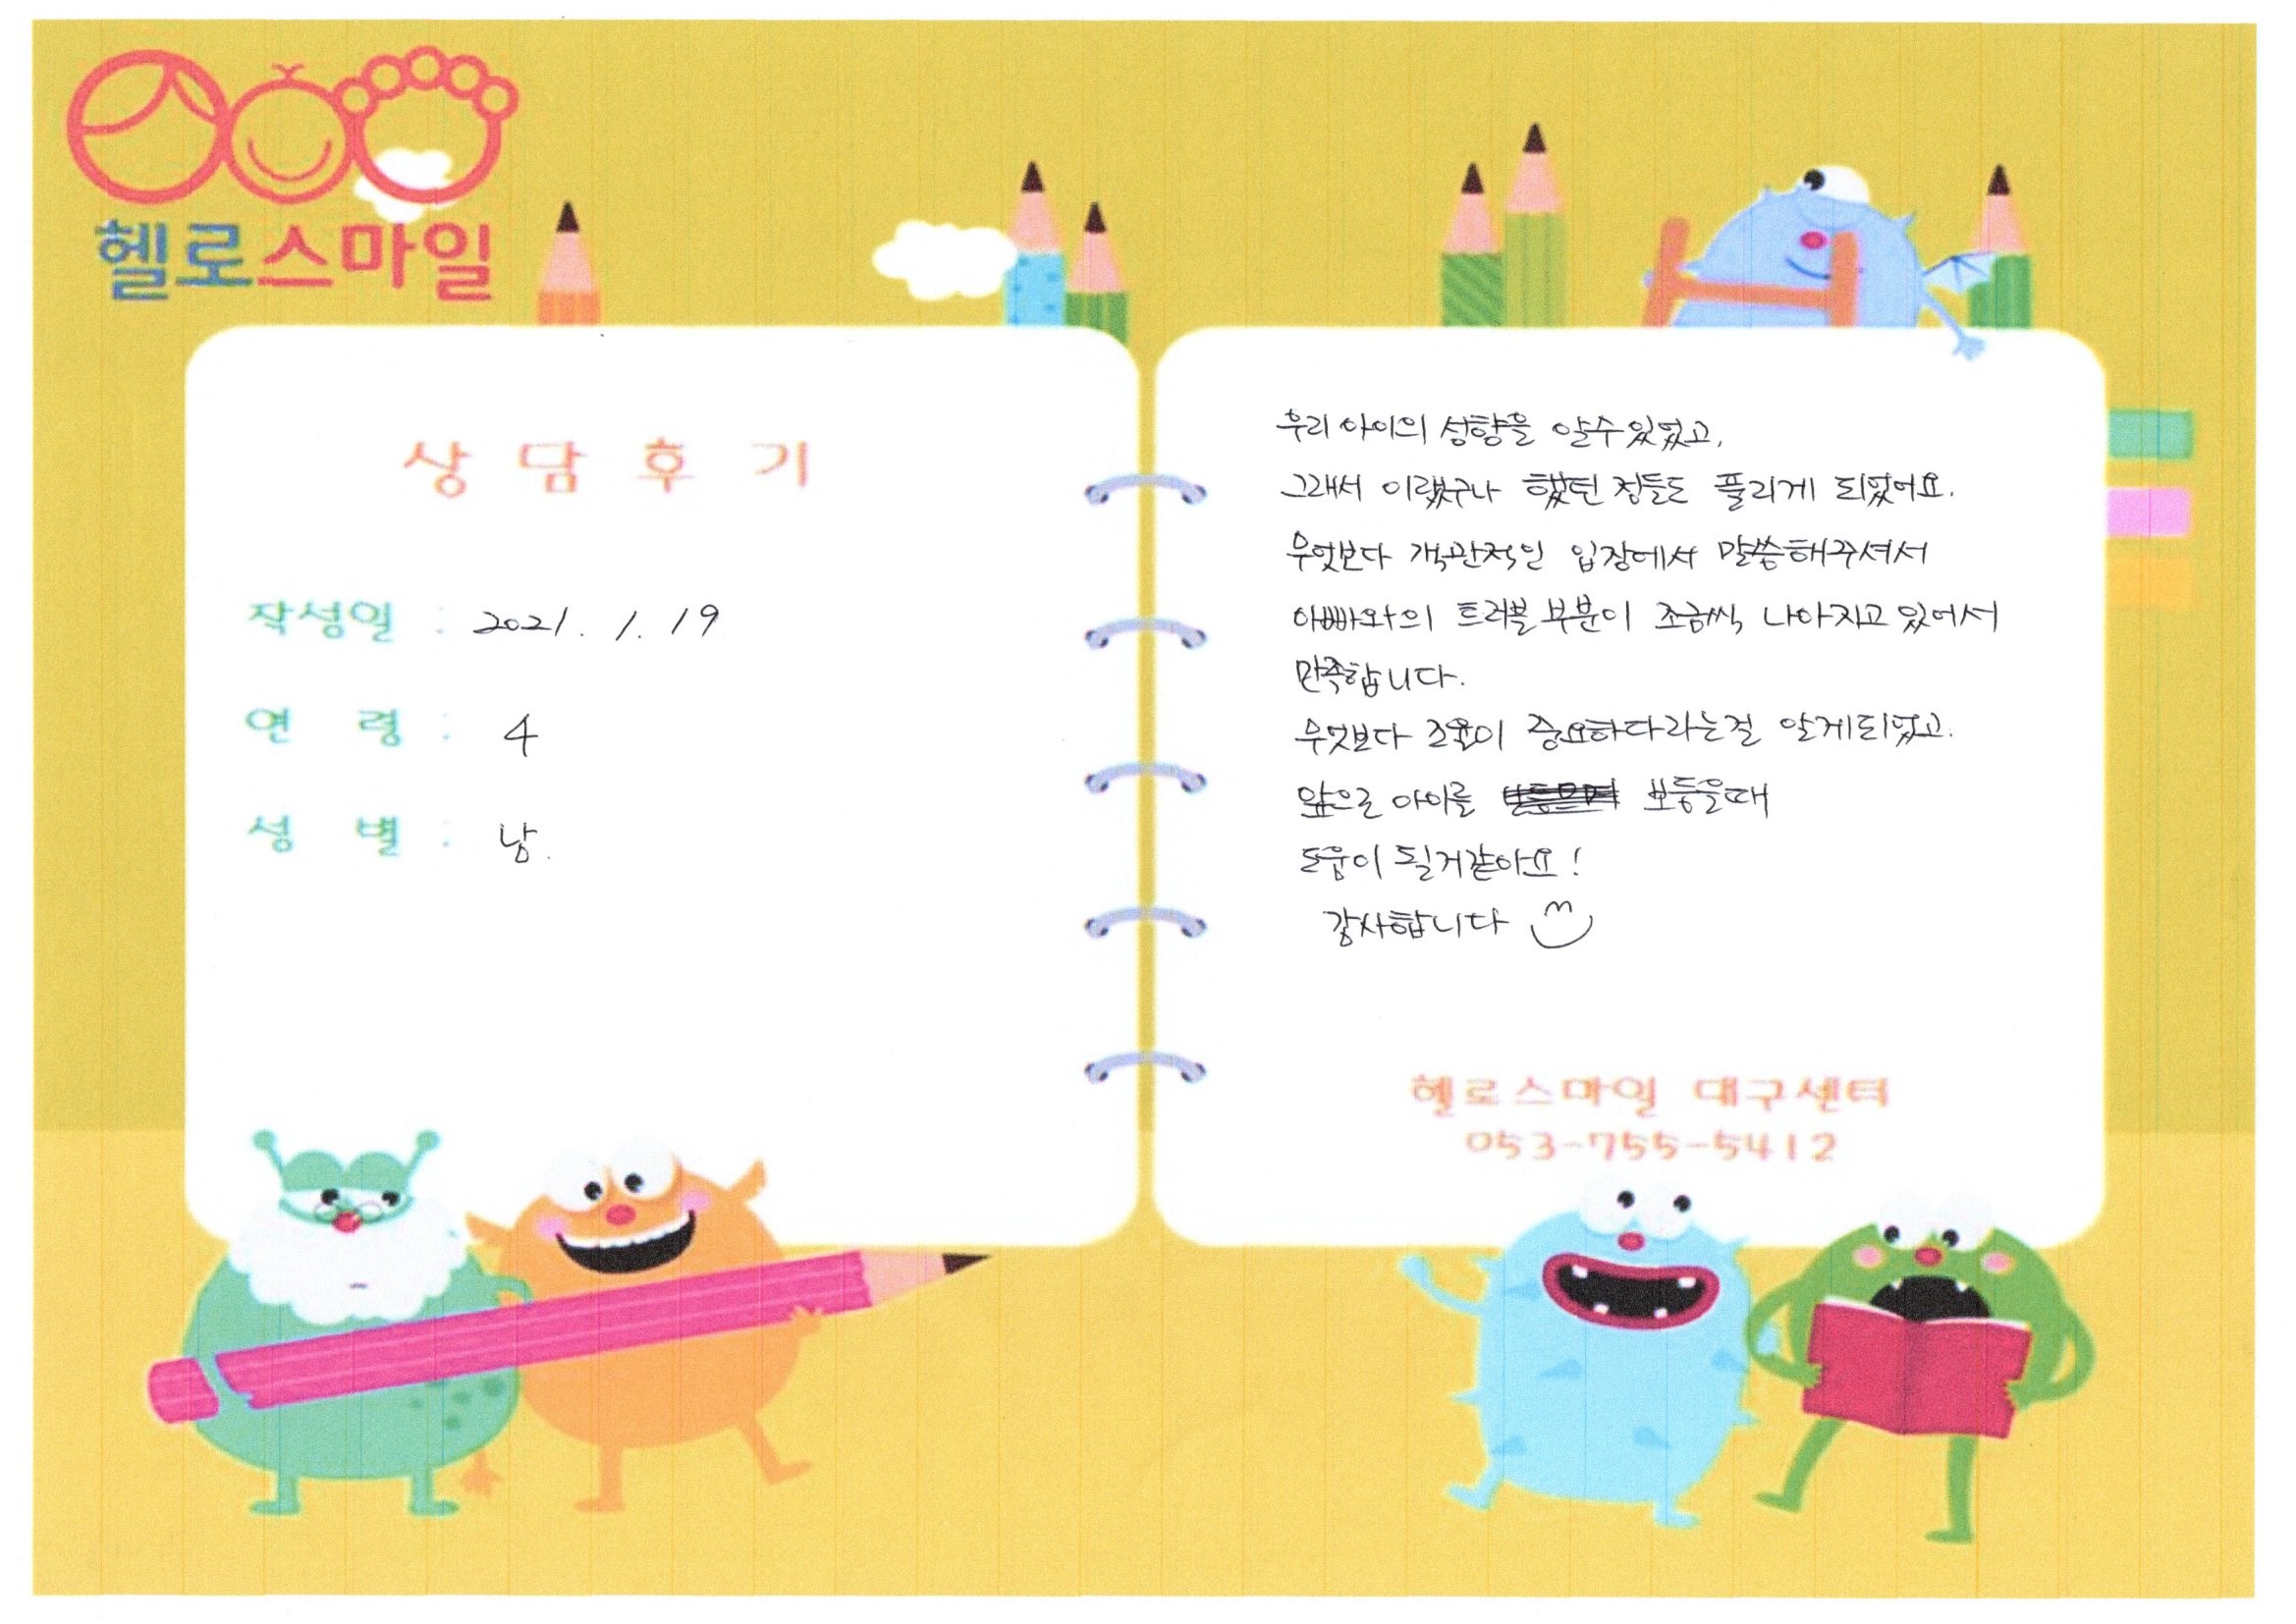 헬로스마일
상 담 후 기
작성일 : 2021. 1. 19
연 령 : 4
성 별 : 남.
우리 아이의 성향을 알수있었고,
그래서 이랬구나 했던 점들도 풀리게 되었어요.
무엇보다 객관적인 입장에서 말씀해주셔서
아빠와의 트러블 부분이 조금씩 나아지고 있어서
만족합니다.
무엇보다 조율이 중요하다라는걸 알게되었고.
앞으로 아이를 보듬을때
도움이 될거같아요!
감사합니다
헬로스마일 대구센터
053-755-5412